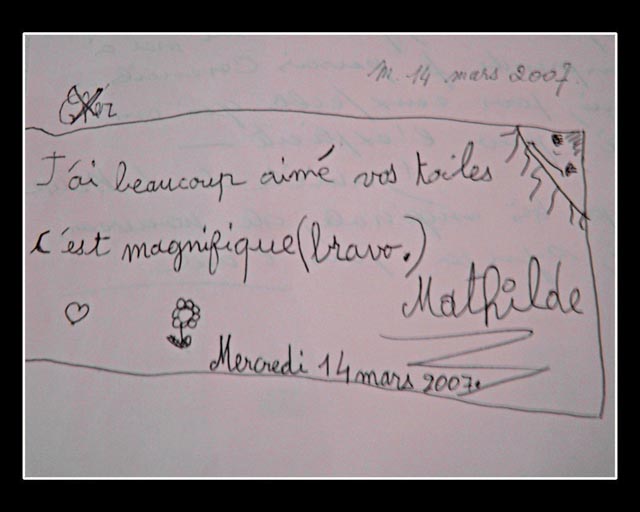 M. 14 mars 2007.
J'ai beaucoup aimé vos toiles
c'est magnifique (bravo.)
Mathilde
Mercredi 14 mars 2007.